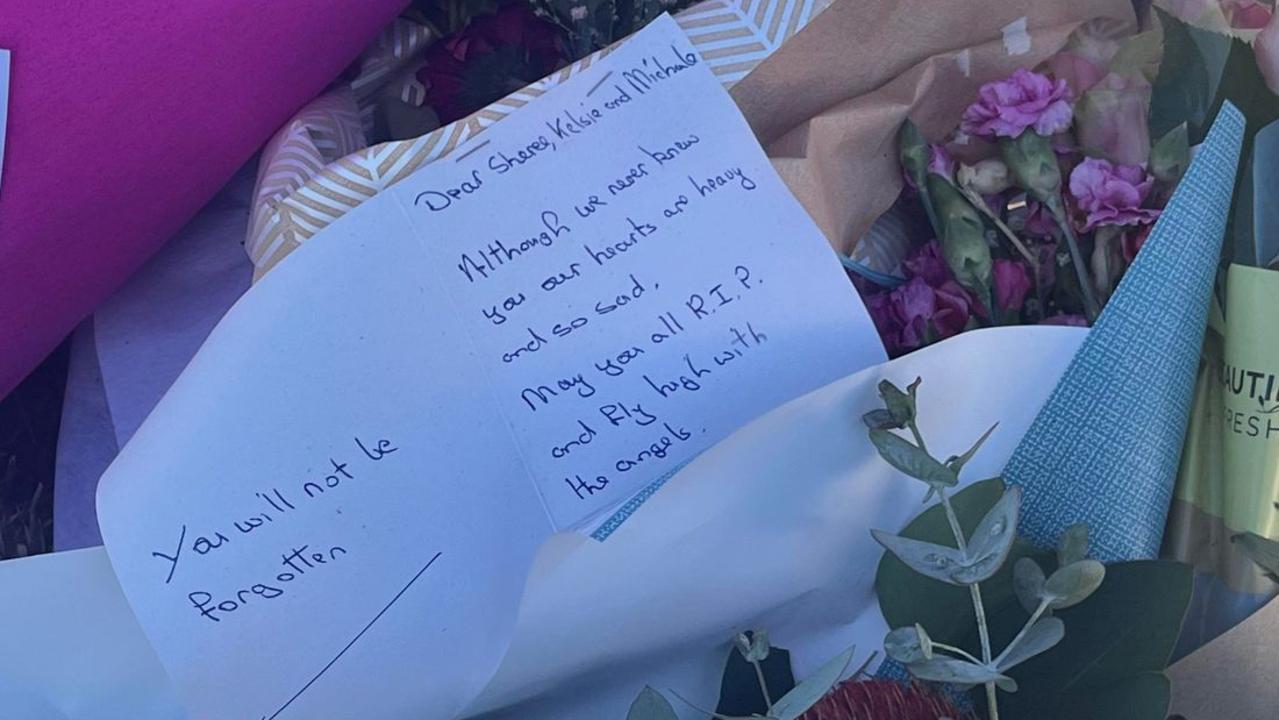 You will not be
forgotten
Dear Sheree, Kelsie and Michale
Although we never knew
you our hearts are heavy
and so sad.
May you all R.I.P.
and fly high with
the angels.